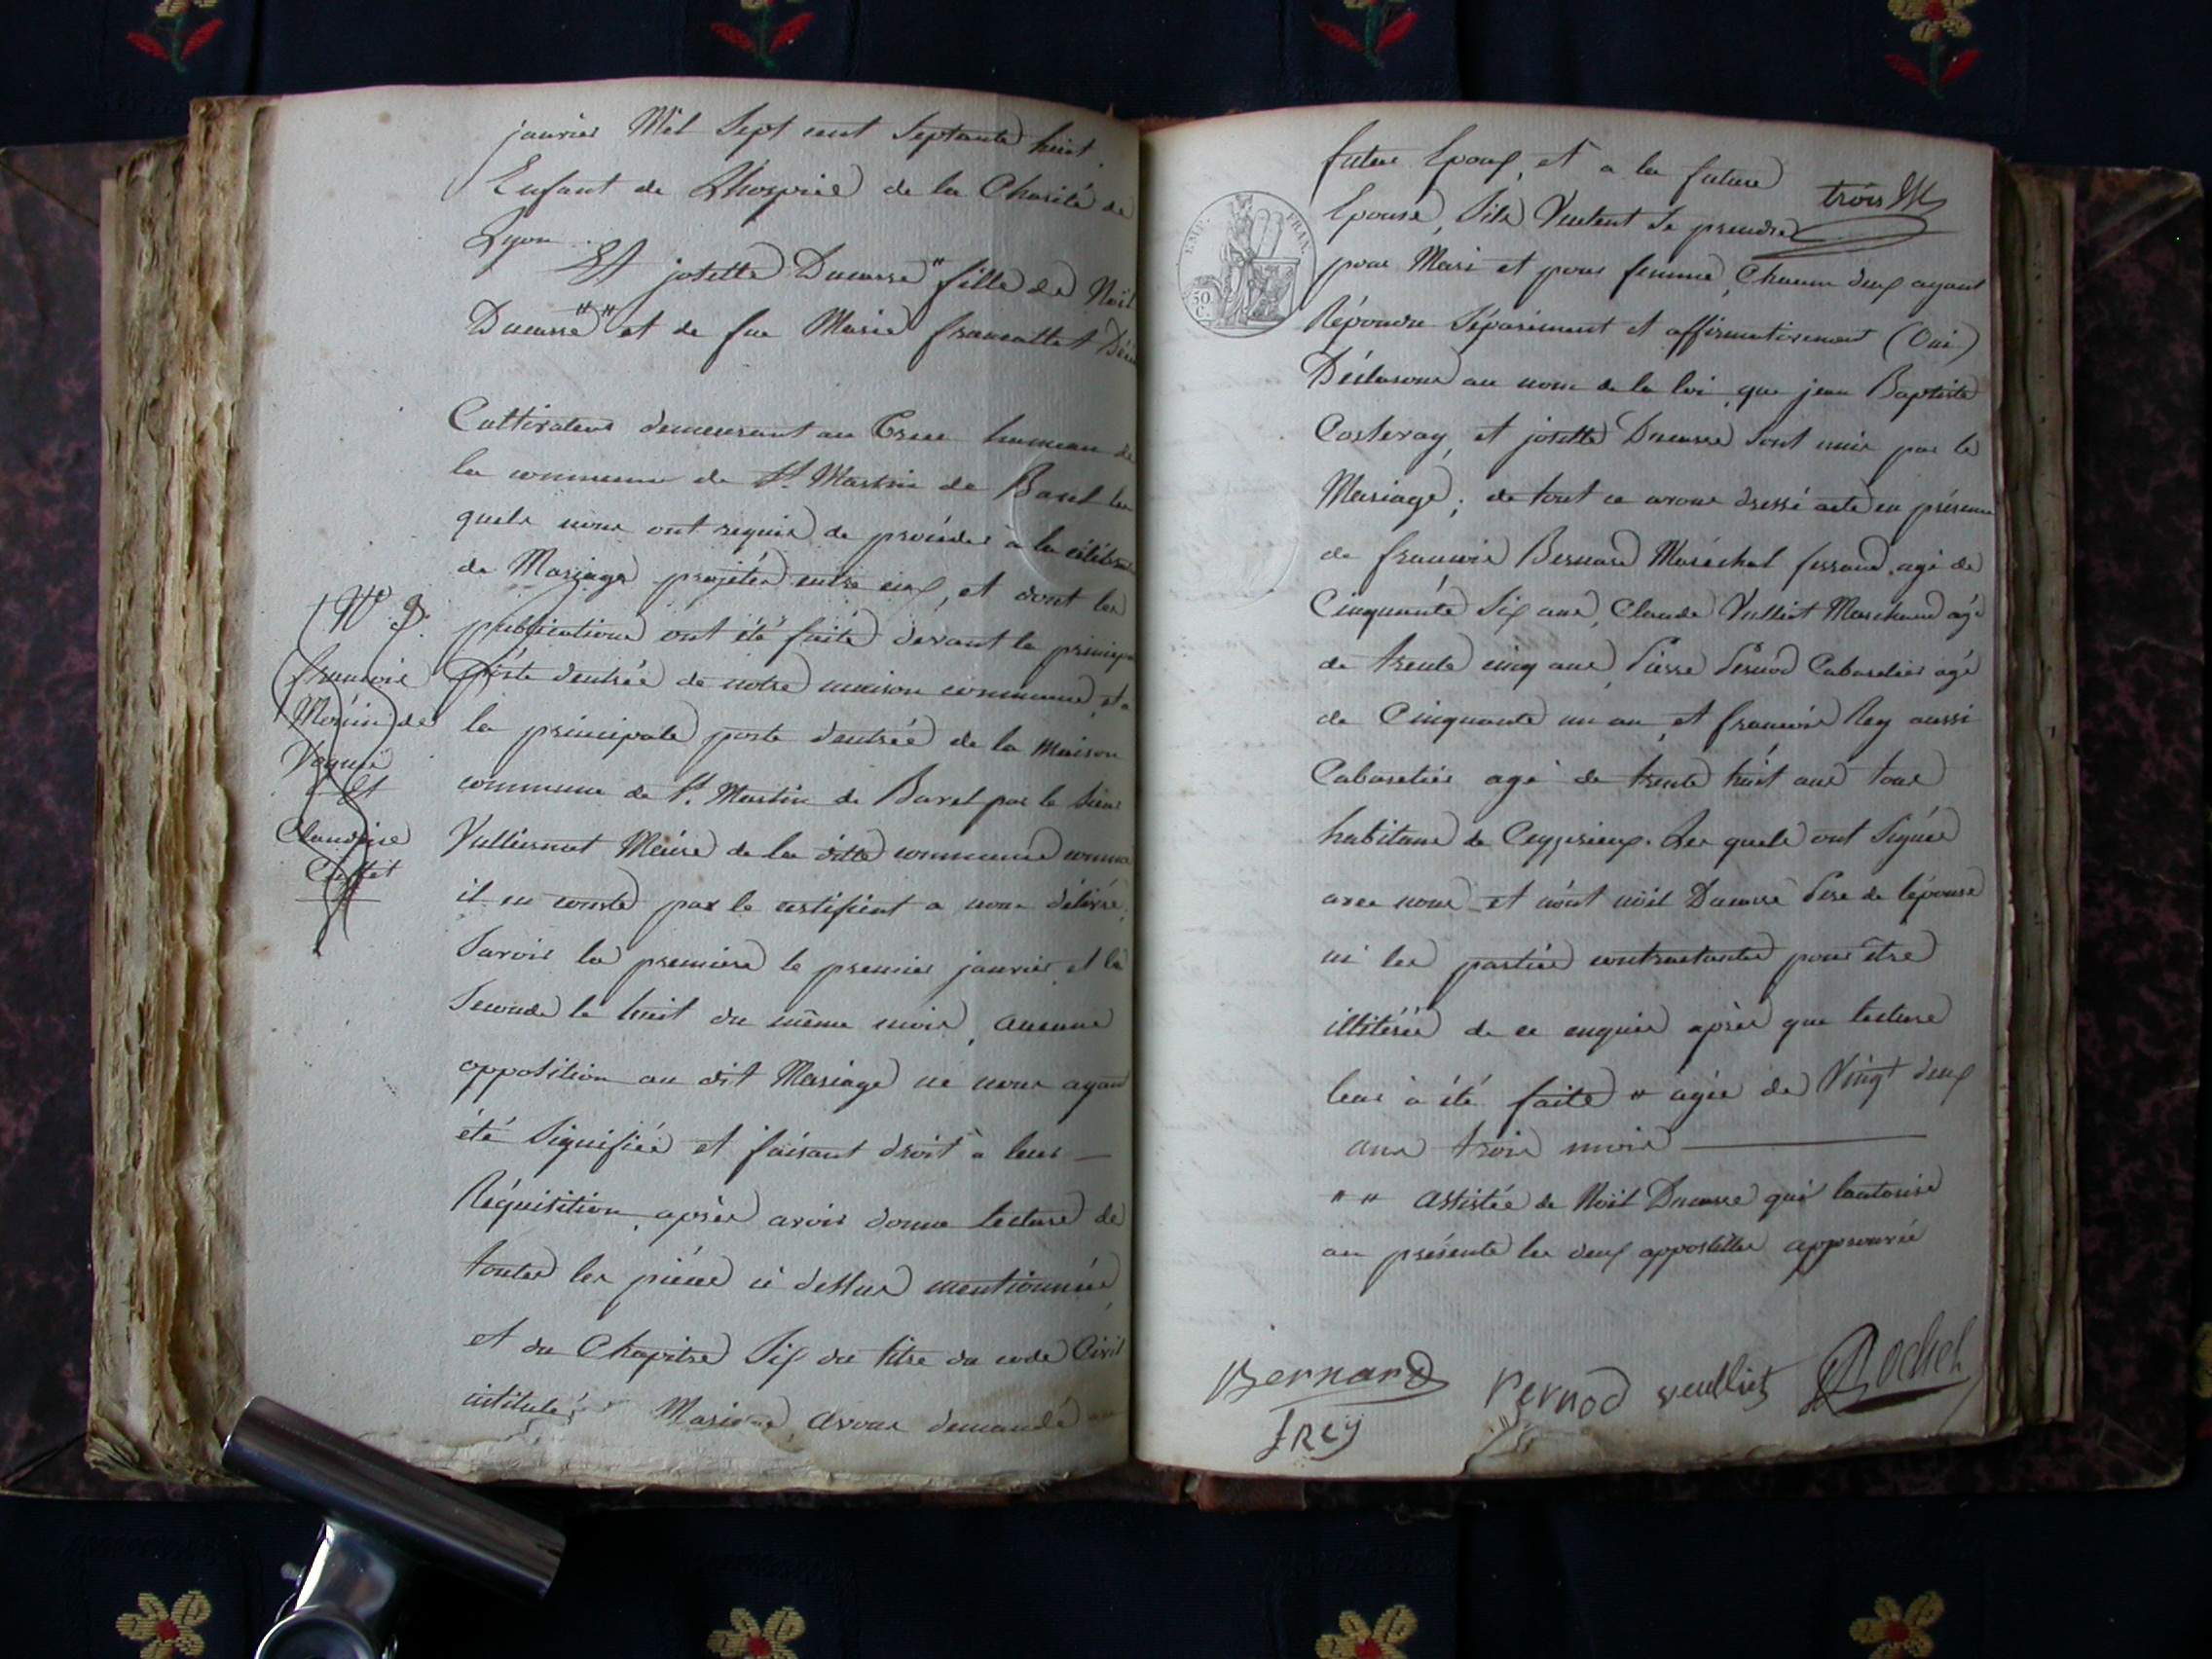 janvier Mil Sept cent Septante huit.
Enfant de Lhospice de la Charité de
Lyon.
Et josette Ducarre " fille de Noël
Ducarre " " et de fue Marie francallet
Cultivateurs demeurant au Crue hameau de
la commune de St. Martin de Bavel les
quels nous ont requis de procéder à la célébra
de Mariage projetée entre eux, et dont les
publications ont été faite devant la princip
porte dentrée de notre maison commune, et a
la principale porte dentrée de la Maison
commune de St. Martin de Bavel par le Sieur
Vulliermet Maire de la ditte commune comme
il en conste par le certificat a nous délivré,
Savoir la premiere le premier janvier, et la
Seconde le huit du même mois, aucune
opposition au dit Mariage ne nous ayant
été Signifiée et faisant droit à leur —
Réquisition, après avoir donné lecture de
toutes les pièces ci dessus mentionnées,
et du Chapitre Six du titre du code Civil
intitulé Mariage, avons demandé au
N° 2.
francois
de
Et
Claudine
futur Epoux, et a la future
trois
Epouse, Sils Veulent Se prendre
pour Mari et pour femme, Chacun deux ayant
Répondu Séparément et affirmativement (Oui)
Déclarons au nom de la loi, que jean Baptiste
Costeray, et josette Ducarre Sont unis par le
Mariage; de tout ce avons dressé acte en présence
de francois Bernard Maréchal ferrand, agé de
Cinquante Six ans, Claude Vulliet Marchand agé
de trente cinq ans, Pierre Pernod Cabaretier agé
de Cinquante un an, et francois Rey aussi
Cabaretier agé de trente huit ans tous
habitans de Ceyzerieux. Les quels ont Signés
avec nous et n'ont noël Ducarre Pere de l'épouse
ni les parties contractantes pour être
illitérés de ce enquis après que lecture
leur à été faite " agée de Vingt deux
ans trois mois —
" " assistée de Noël Ducarre qui lautorise
au présente les deux appostilles approuvée
Bernard Pernod Vulliet Rochel
f Rey